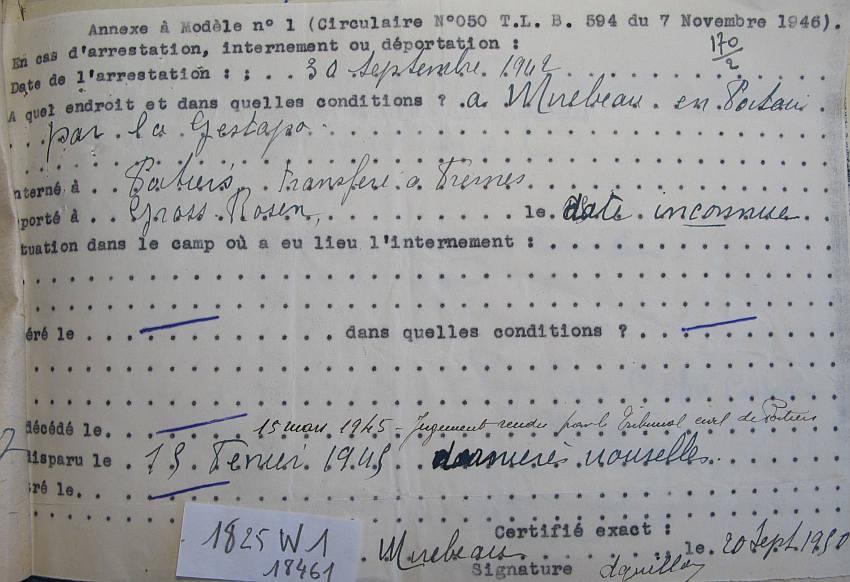 Annexe à Modèle n° 1 (Circulaire N°050 T.L. B. 594 du 7 Novembre 1946).
En cas d'arrestation, internement ou déportation :
170/2
Date de l'arrestation : ; . . 30 Septembre 1942
A quel endroit et dans quelles conditions ? a Mirebeau en Poitou
par la Gestapo
nterné à . . Poitiers, transfere a Fresnes
porté à . . Gross Rosen, le date inconnue
tuation dans le camp où a eu lieu l'internement :
éré le . . . dans quelles conditions ?
décédé le. 15 mars 1945 - Jugement rendu par le Tribunal civil de Poitiers
disparu le . 15 Fevrier 1945 dernieres nouvelles
ré le. .
Certifié exact :
Mirebeau le. 20 Sept. 1950
Signature
1825 W 1
18461